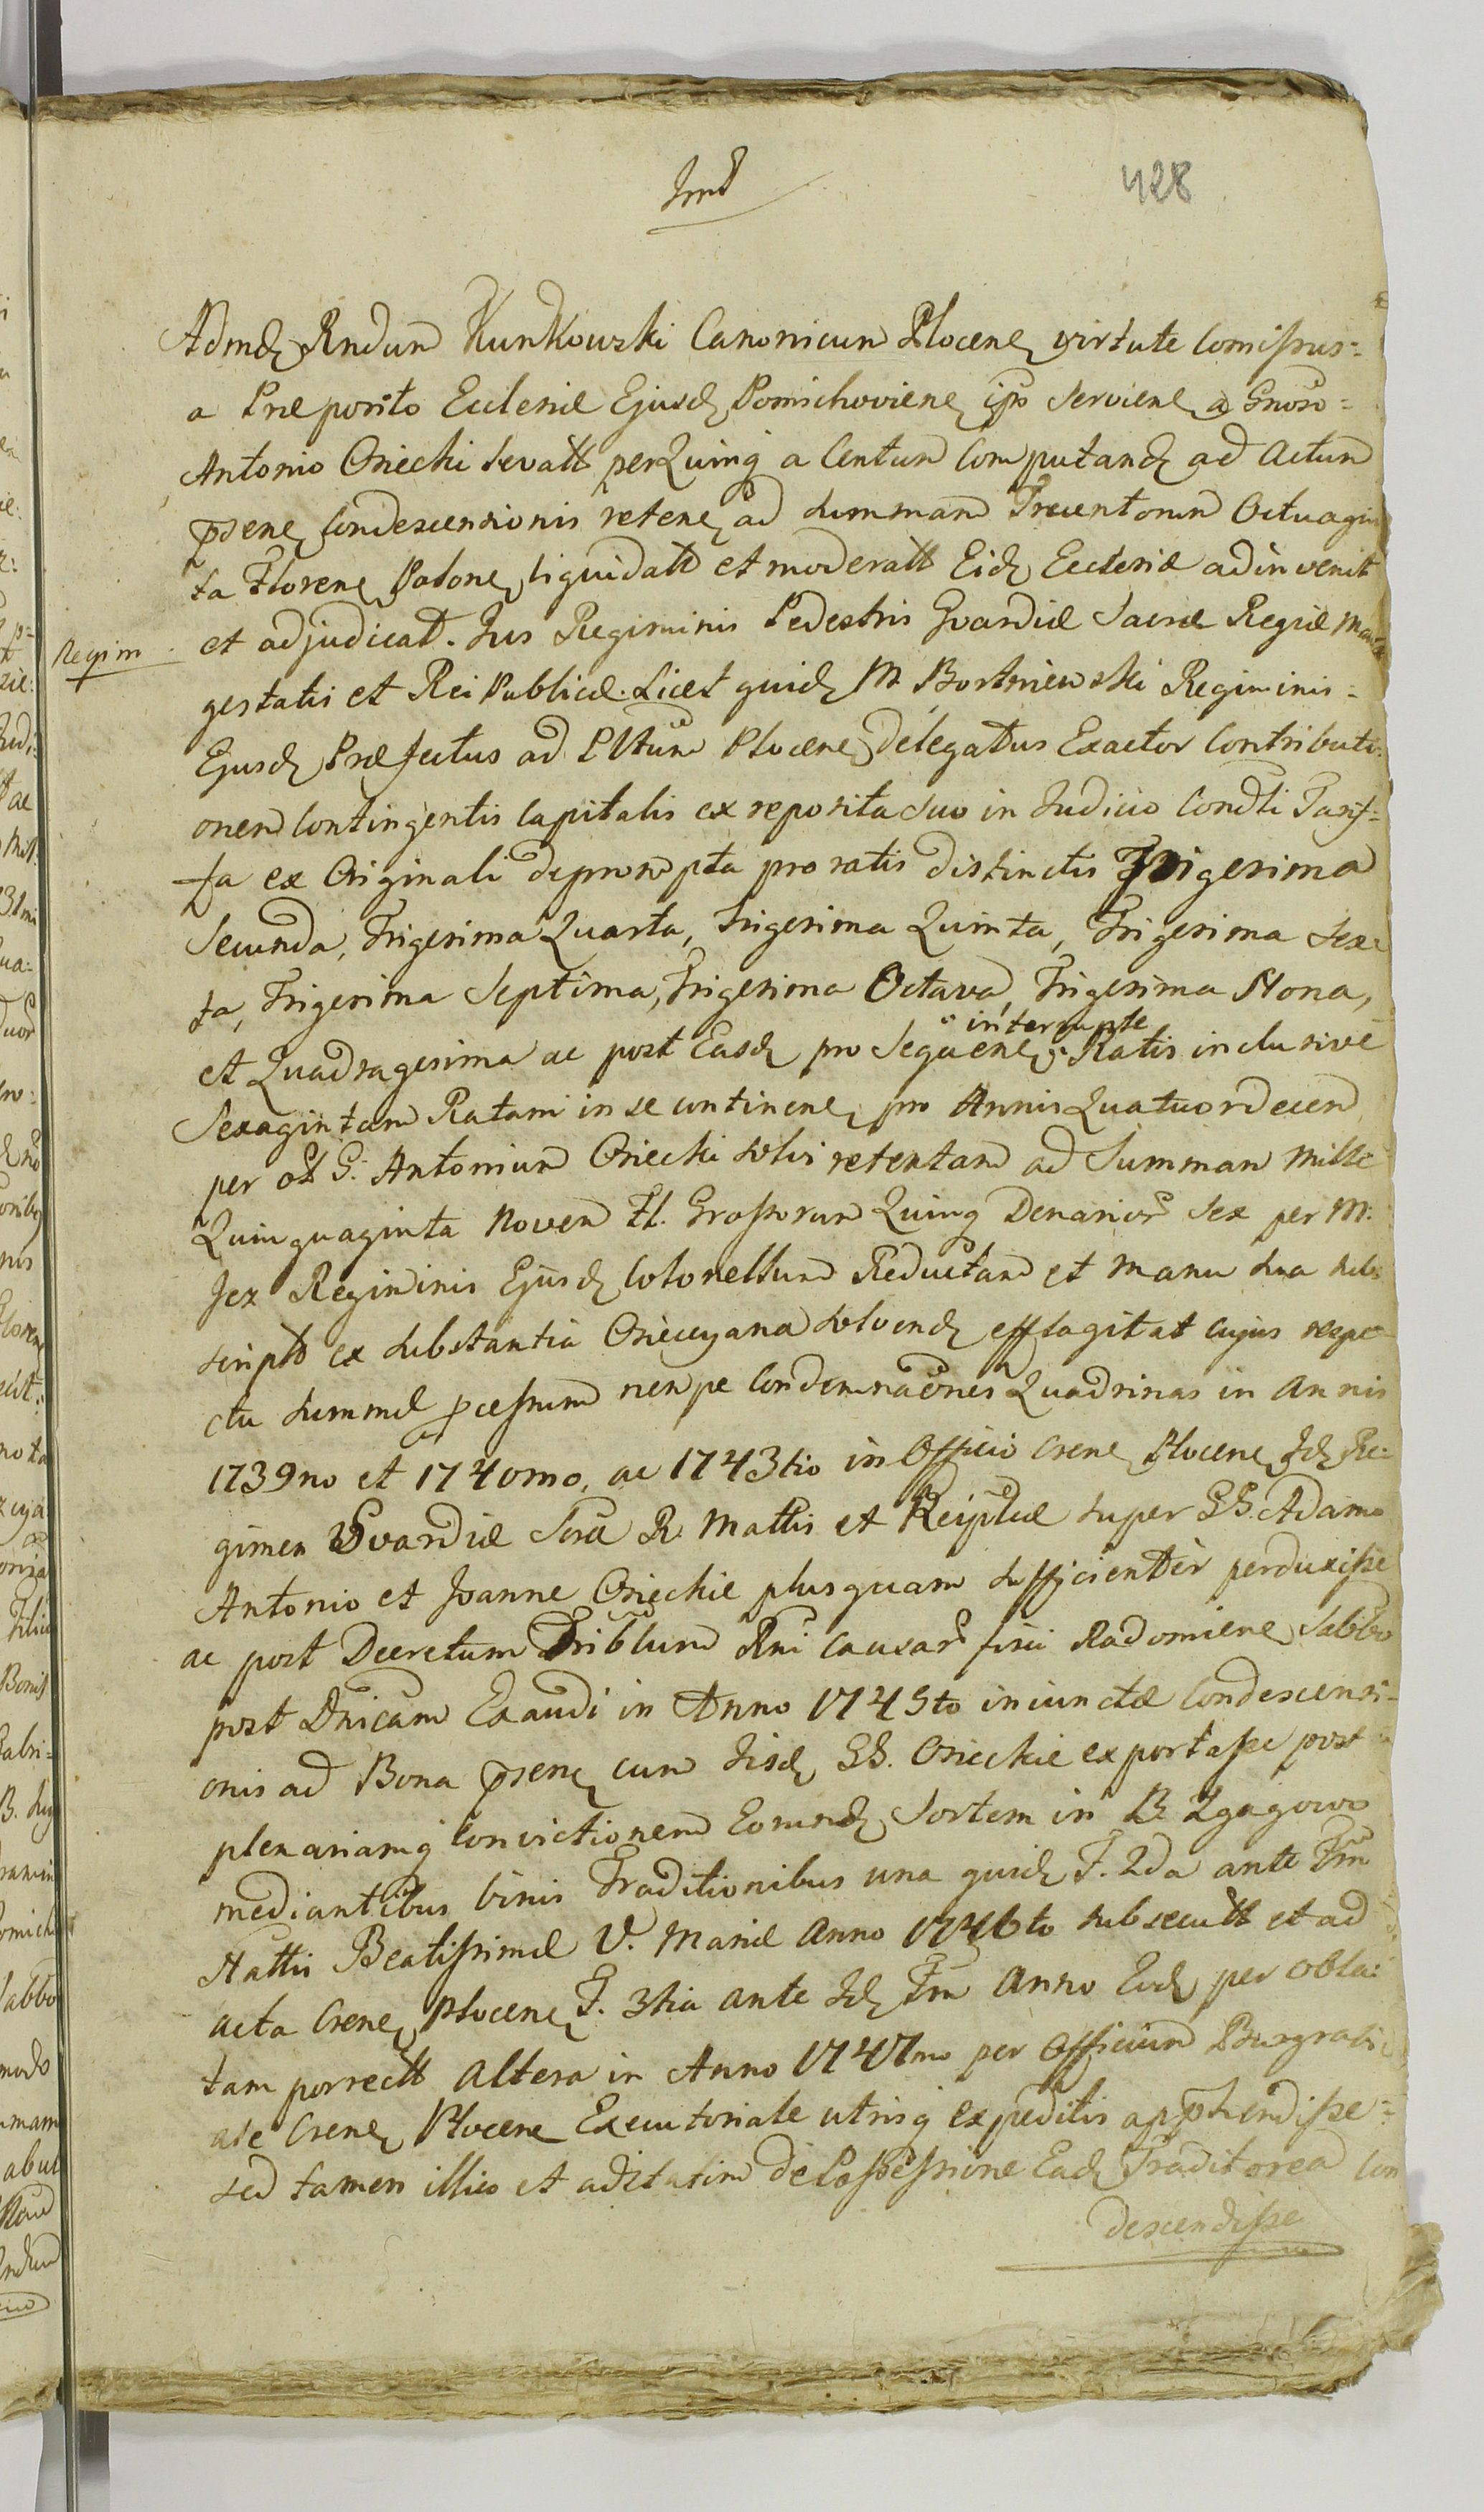 428
Admd Rndum Kunkowski Canonicum Plocen virtute Comissus=
a Præposito Ecclesiæ Ejusd Pomichovien ipso servien a Gnoso=
Antonio Osiecki levatt per Quinq a Centum Computand ad Actum
psen Condescensionis reten ad summam Trecentorum Octuagin
ta Floren Polon liquidatt et moderatt Eid Ecclesiæ adinvenit
et adjudicat. Jus Regiminis Pedestris Gvardiæ Sacræ Regiæ Ma
Regim
gestatis et Rei Publicæ. Licet quid M. Bortniewski Regiminis=
Ejusd Præfectus ad Plttum Plocen delegatus Exactor Contributi
onem Contingentis Capitalis ex reposita suo in Judicio Condti Tarif=
fa ex Originali deprompta pro ratis distinctis Trigesima
Secunda, Trigesima Quarta, Trigesima Quinta, Trigesima Sex=
ta, Trigesima Septima, Trigesima Octava, Trigesima Nona,
interrupte
et Quadragesima ac post Easd pro Sequen Ratis inclusive
Sexagintam Ratam in se continen pro Annis Quatuordecem
per ol G. Antonium Osiecki solvi retentam ad Summam Mille
Quinquaginta Novem Fl. Grossorum Quinq Denarior Sex per M.
Jex Regiminis Ejusd Colonellum Reductam et Manu sua sub
scripto ex substantia Osiecyana solvend efflagitat cujus respe
ctu summæ pcessum nempe Condemnaones Quadrinas in Annis
1739no et 1740mo, ac 1743tio in Officio Cren Plocen Id Re=
gimen Gvardiæ Sræ R. Mattis et Reiplcæ super GG. Adamo
Antonio et Joanne Osieckie plusquam sufficienter perduxisse
ac post Decretum Triblum Rni Causar fisci Radomien Sabbo
post Dnicam Exaudi in Anno 1745to iniunctæ Condescensi=
onis ad Bona psen cum iisd GG. Osieckie exportasse post
plenariamq Convictionem Eorund Sortem in B. Zgagowo
mediantibus binis Traditionibus una quid F. 2da ante Fm
Nattis Beatissimæ V. Mariæ Anno 1746to subsecutt et ad
acta Cren Plocen F. 3tia ante Id Fm Anno Eod per Obla=
tam porrectt altera in Anno 1747mo per Officium Burgrabi
ale Cren Plocen Executoriale utrisq expeditis apphendisse=
sed tamen illico et adstatim de Possessione Ead Traditorea Con
descendisse